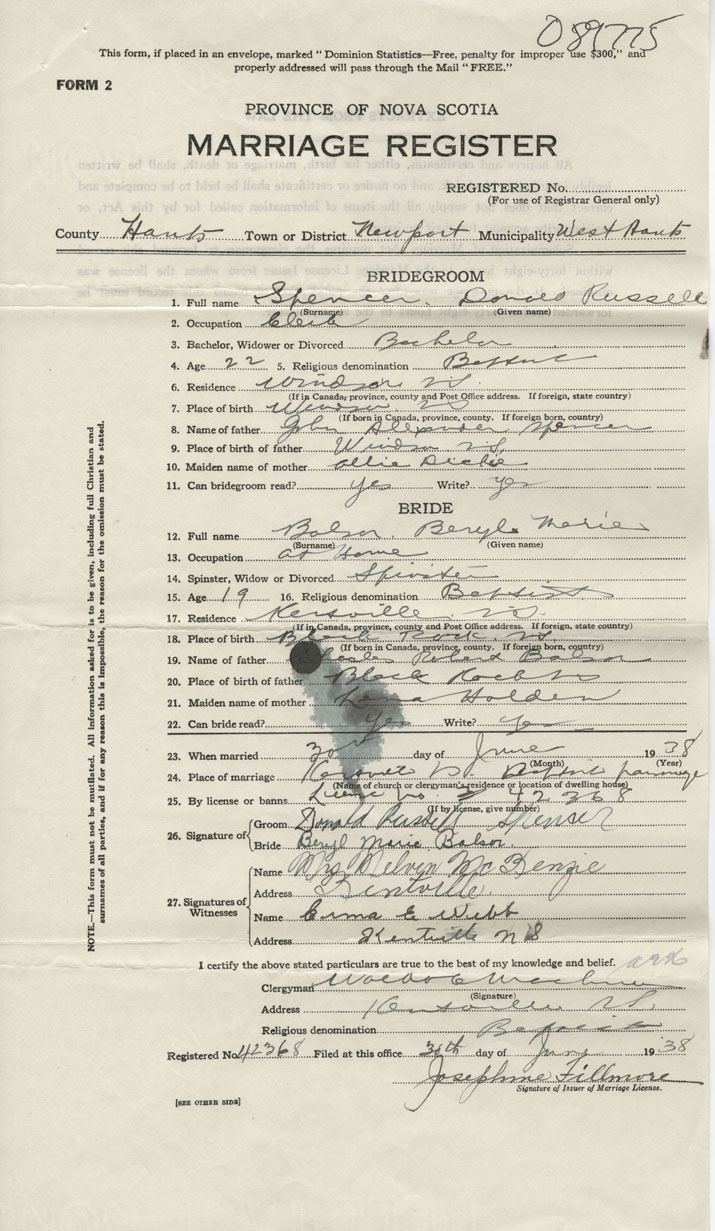 089775
This form, if placed in an envelope, marked "Dominion Statistics—Free, penalty for improper use $300," and
properly addressed will pass through the Mail "FREE."
FORM 2
PROVINCE OF NOVA SCOTIA
MARRIAGE REGISTER
REGISTERED No.
(For use of Registrar General only)
County Hants Town or District Newport Municipality West Hants
BRIDEGROOM
1. Full name Spencer, Donald Russell
(Surname) (Given name)
2. Occupation Clerk
3. Bachelor, Widower or Divorced Bachelor
4. Age 22 5. Religious denomination Baptist
6. Residence Windsor NS.
(If in Canada, province, county and Post Office address. If foreign, state country)
7. Place of birth Windsor NS
(If born in Canada, province, county. If foreign born, country)
8. Name of father John Alexander Spencer
9. Place of birth of father Windsor NS,
10. Maiden name of mother Allie Dickie
11. Can bridegroom read? Yes Write? Yes
BRIDE
12. Full name Balsor, Beryl Marie
(Surname) (Given name)
13. Occupation at Home
14. Spinster, Widow or Divorced Spinster
15. Age 19 16. Religious denomination Baptist
17. Residence NS.
(If in Canada, province, county and Post Office address. If foreign, state country)
18. Place of birth Black Rock NS.
(If born in Canada, province, county. If foreign born, country)
19. Name of father Robert Balsor
20. Place of birth of father Black Rock NS
21. Maiden name of mother Lena Holden
22. Can bride read? Yes Write? Yes
23. When married 30 day of June 1938
(Month) (Year)
24. Place of marriage NS. Baptist parsonage
(Name of church or clergyman's residence or location of dwelling house)
25. By license or banns License no. 42368
(If by license, give number)
26. Signature of Groom Donald Russell Spenser
Bride Beryl Marie Balsor.
27. Signatures of Witnesses
Name Mrs Melvin McKenzie
Address Kentville.
Name Erma E Webb
Address Kentville N S
I certify the above stated particulars are true to the best of my knowledge and belief.
Clergyman
(Signature)
Address NS.
Religious denomination Baptist
Registered No. 42368 Filed at this office 30th day of June 1938
Josephine Fillmore
Signature of Issuer of Marriage License.
[SEE OTHER SIDE]
NOTE.—This form must not be mutilated. All information asked for is to be given, including full Christian and
surnames of all parties, and if for any reason this is impossible, the reason for the omission must be stated.